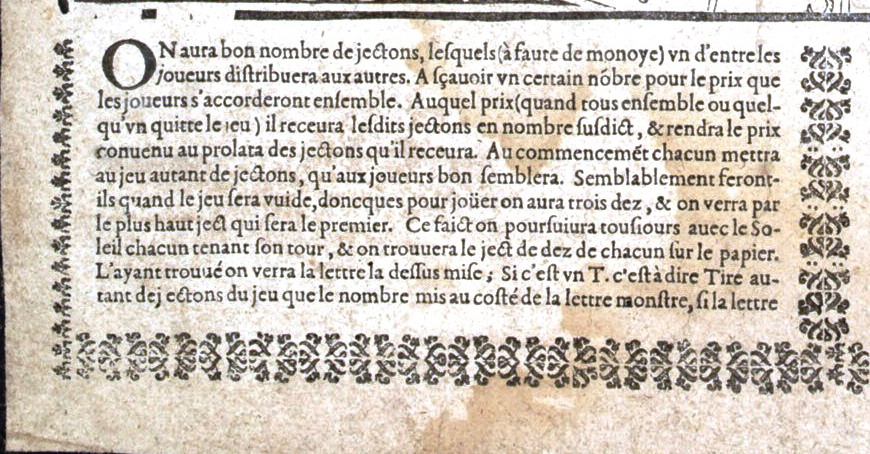 ON aura bon nombre de jectons, leſquels (à faute de monoye) vn d'entre les
joueurs diſtribuera aux autres. A ſçauoir vn certain nõbre pour le prix que
les joueurs s'accorderont enſemble. Auquel prix (quand tous enſemble ou quel-
qu'vn quitte le ieu) il receura leſdits jectons en nombre ſuſdict, & rendra le prix
conuenu au prolata des jectons qu'il receura. Au commencemẽt chacun mettra
au jeu autant de jectons, qu'aux joueurs bon ſemblera. Semblablement feront-
ils quand le jeu ſera vuide, doncques pour joüer on aura trois dez, & on verra par
le plus haut ject qui ſera le premier. Ce faict on pourſuiura touſiours auec le So-
leil chacun tenant ſon tour, & on trouuera le ject de dez de chacun ſur le papier.
L'ayant trouué on verra la lettre la deſſus miſe; Si c'eſt vn T. c'eſt à dire Tire au-
tant dej ectons du jeu que le nombre mis au coſté de la lettre monſtre, ſi la lettre